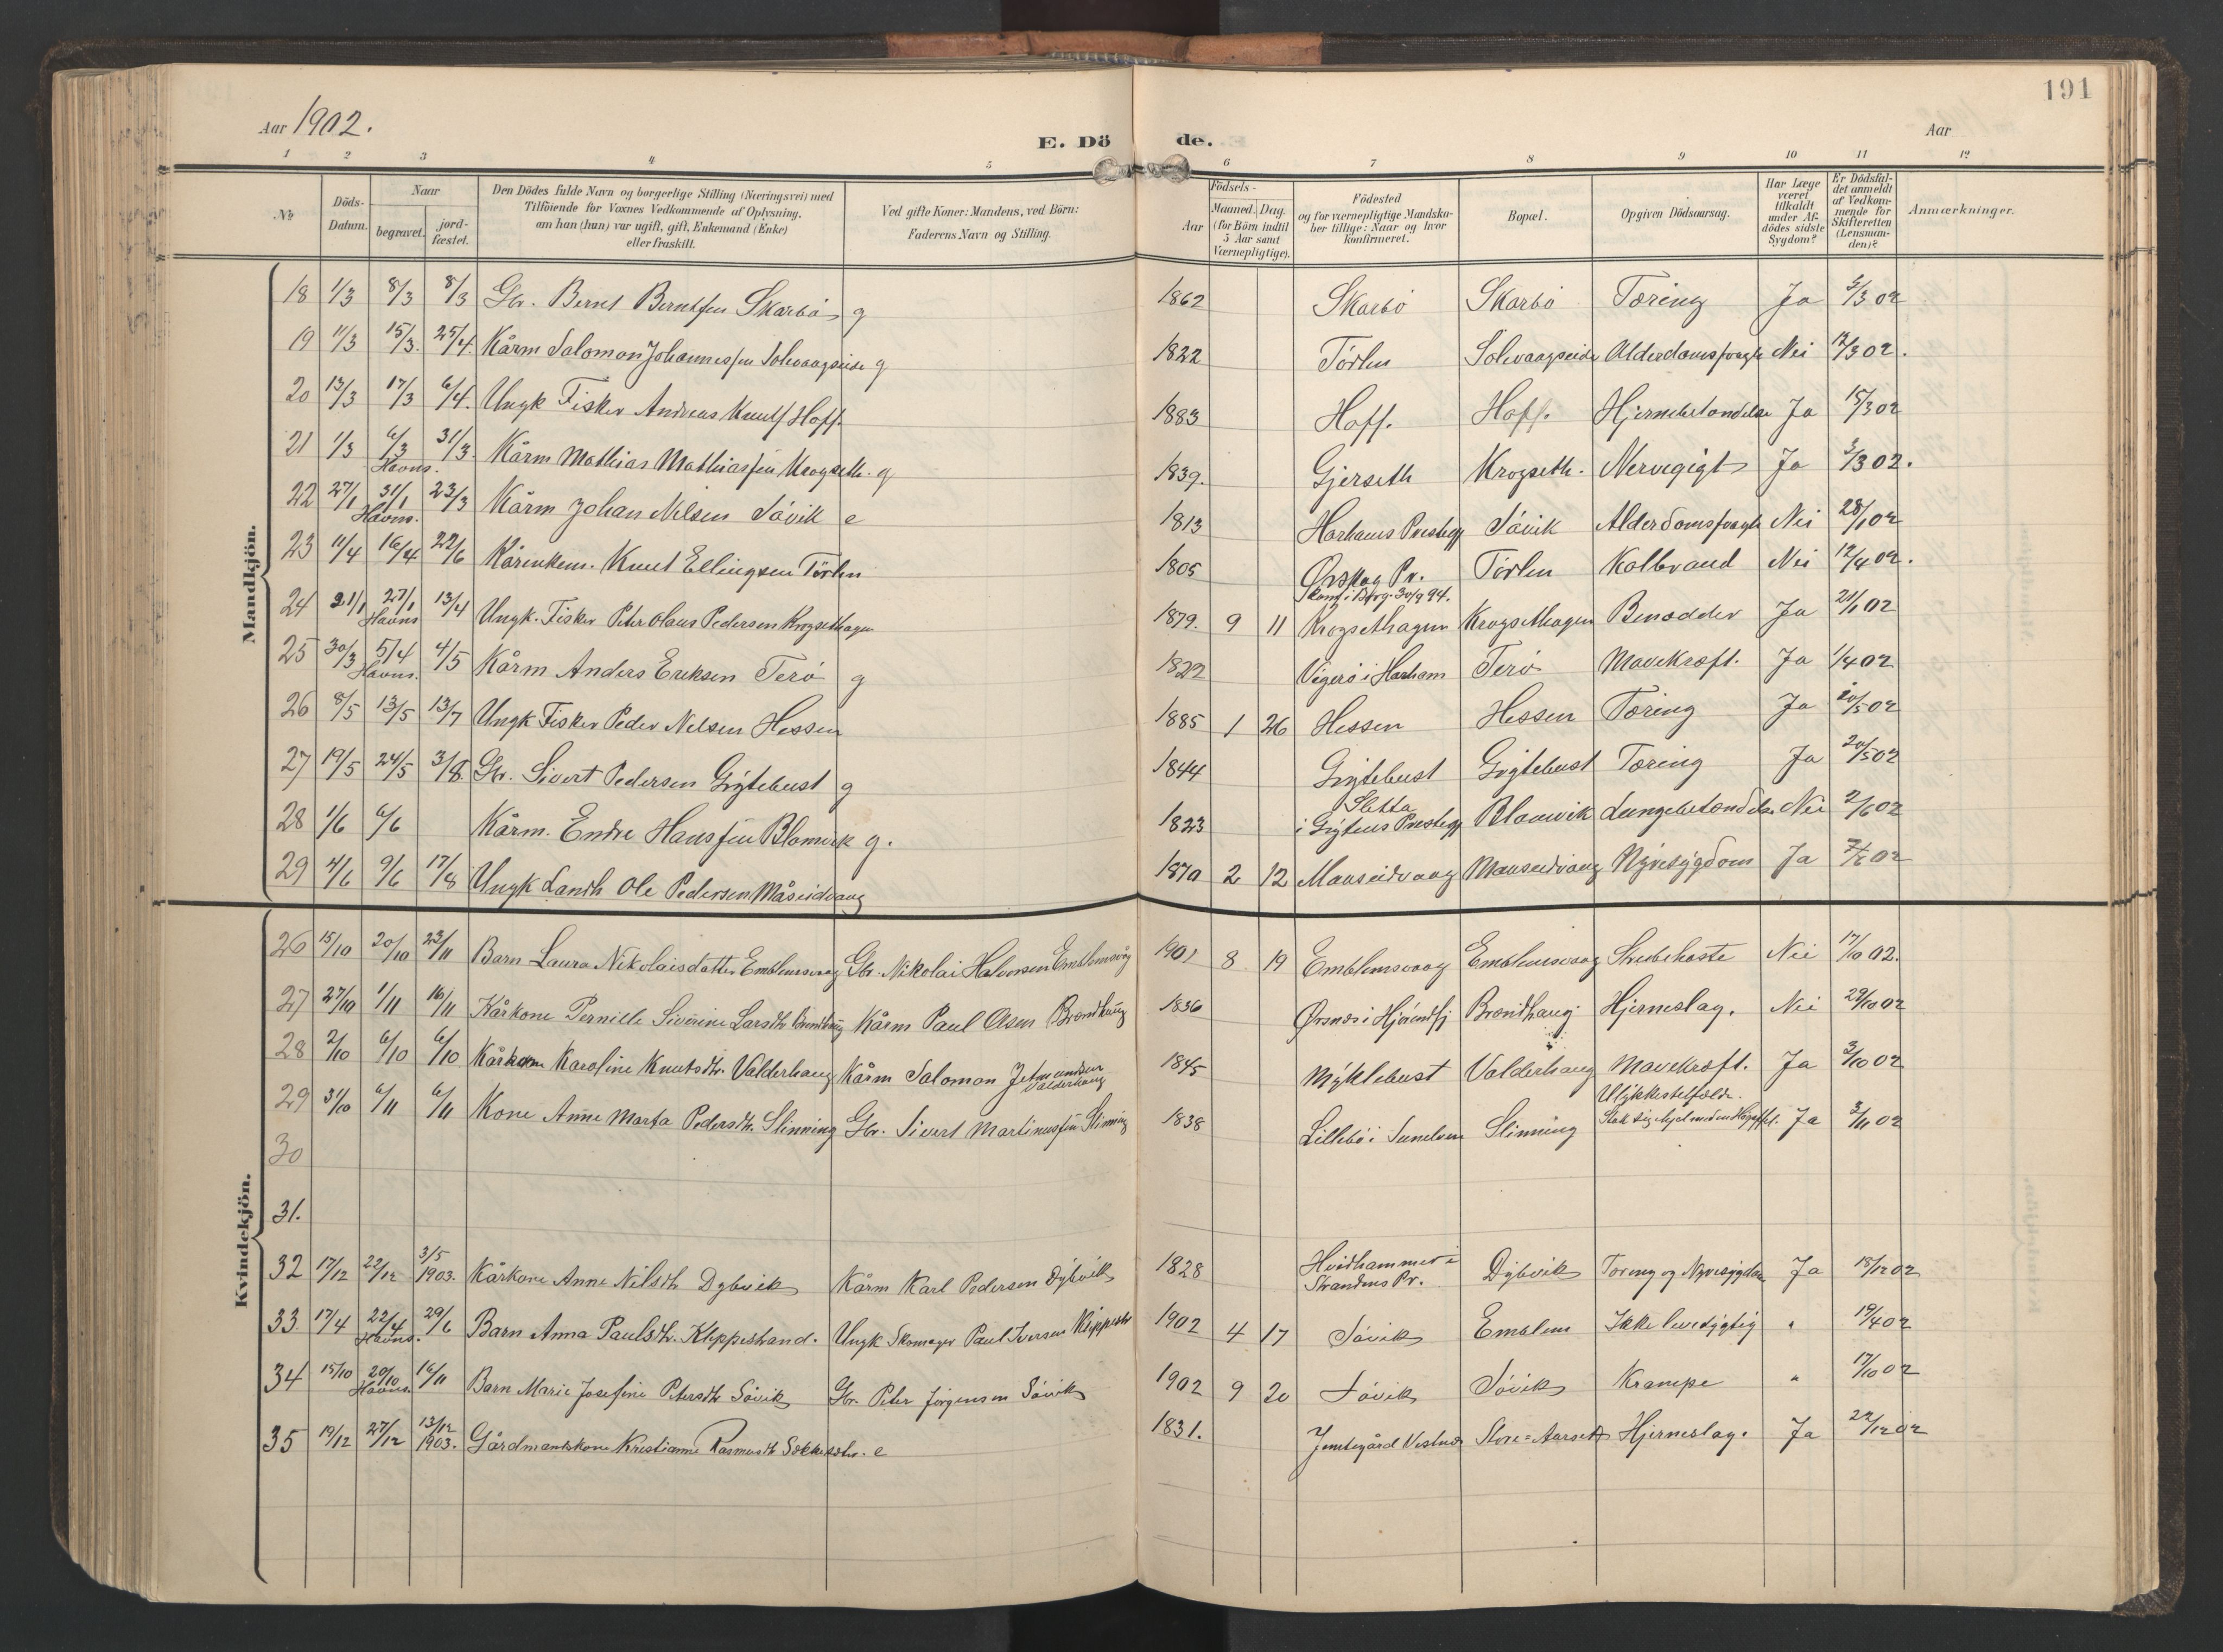 191
Aar 1902.
E. Dö de.
Aar
1 2 3 4 5 6 7 8 9 10 11 12
No
Döds-Datum.
Naar
begravet.
jord-fæstet.
Den Dödes fulde Navn og borgerlige Stilling (Næringsvei) med
Tilföiende for Voxnes Vedkommende af Oplysning,
om han (hun) var ugift, gift, Enkemand (Enke)
eller fraskilt.
Ved gifte Koner: Mandens, ved Börn:
Faderens Navn og Stilling.
Födsels-
Aar
Maaned. Dag.
(for Börn indtil
5 Aar samt
Værnepligtige).
Födested
og for værnepligtige Mandska-
ber tillige: Naar og hvor
konfirmeret.
Bopæl.
Opgiven Dödsaarsag.
Har Læge
været
tilkaldt
under Af-
dödes sidste
Sygdom?
Er Dödsfal-
det anmeldt
af Vedkom-
mende for
Skifteretten
(Lensman-
den)?
Anmærkninger.
Mandkjön.
18 1/3 8/3 8/3 Gbr. Bernt Berntsen Skarbö g 1862 Skarbö Skarbö Tæring Ja 3/3 02
19 11/3 15/3. 25/4. Kårm Salomon Johannessen Solevaagseide g 1822 Törlen Solevaagseide Alderdomssvagh Nei 12/3 02.
20 13/3 17/3 6/4. Ungk Fisker Andreas Knuts Hoff. 1883 Hoff. Hoff. Hjernebetændelse Ja 15/3 02
21 1/3 6/3 Havns. 31/3. Kårm Mathias Mathiassen Krogseth. g 1839. Gjerseth Krogseth. Nervegigt Ja 3/3 02.
22 27/1 31/1 Havns. 23/3 Kårm Johan Nilsen Sövik e 1813 Harhams Prestegj Sövik Alderdomssvagh Nei 28/1 02
23 11/4 16/4 22/6 Kårenkem. Knut Ellingsen Törlen 1805 Ørskog Pr. Törlen Kolbrand Nei 12/4 02.
24 21/1 27/1 Havns 13/4 Ungk. Fisker Peter Olaus Pedersen Krogsethagen 1879. 9 11 Konf. i Borg. 30/9 94. Krogsethagen Krogsethagen Benædder Ja 21/1 02
25 30/3 5/4 Havns. 4/5 Kårm Anders Eriksen Terö g 1822 Vigerö i Harham Terö Mavekræft. Ja 1/4 02
26 8/5 13/5 13/7 Ungk Fisker Peder Nilsen Hessen 1885 1 26 Hessen Hessen Tæring Ja 10/5 02
27 19/5 24/5 3/8. Gbr. Sivert Pedersen Grytebust g 1844 Grytebust Grytebust Tæring Ja 20/5 02
28 1/6 6/6 Kårm. Endre Hanssen Blomvik g. 1823 Sletta i Grytens Prestegj Blomvik Lungebetændelse. Nei 2/6 02
29 4/6 9/6 17/8 Ungk Landh Ole Pedersen Måseidvaag 1870 2 12 Mauseidvaag Mauseidvaag Nyresygdom Ja 7/6 02
Kvindekjön.
26 15/10 20/10 23/11 Barn Laura Nikolaisdatter Emblemsvaag Gbr. Nikolai Halvorsen Emblemsvåg 1901 8 19 Emblemsvaag Emblemsvaag Strubehoste Nei 17/10 02.
27 27/10 1/11 16/11 Kårkone Pernille Siverine Larsdtr Brendhaug Kårm Paul Olsen Brendhaug 1836 Ørsnes i Hjörundfj Brendhaug Hjerneslag. Nei 29/10 02
28 2/10 6/10 6/10 Kårkone Karoline Knutsdtr. Valderhaug Kårm Salomon Jetmundsen Valderhaug 1845 Myklebust Valderhaug Mavekræft. Ja 3/10 02
29 31/10 6/11 6/11 Kone Anne Marta Pedersdtr. Slinning Gbr. Sivert Martinussen Slinning 1838 Lillebö i Sunelven Slinning Ulykkestilfælde. Stak sig ihjel med en Høgaffel. Ja 3/11 02
30
31.
32 17/12 22/12 3/5 1903. Kårkone Anne Nilsdtr Dybvik Kårm Karl Pedersen Dybvik 1828 Hvidhammer i Strandens Pr. Dybvik Tæring og Nyresygdom Ja 18/12 02
33 17/4 22/4 Havns. 29/6 Barn Anna Paulsdtr. Kleppestrand. Ungk Skomager Paul Iversen Kleppestr 1902 4 17 Sövik Emblem Ikke levedygtig " 19/4 02
34 15/10 20/10 Havns. 16/11 Barn Marie Josefine Petersdtr Sövik Gbr. Peter Jörgensen Sövik 1902 9 20 Sövik Sövik Krampe " 17/10 02
35 19/12 27/12 13/12 1903. Gårdmandskone Kristianne Rasmusdtr e 1831. Vestnes Store-Aarseth Hjerneslag. Ja 22/12 02